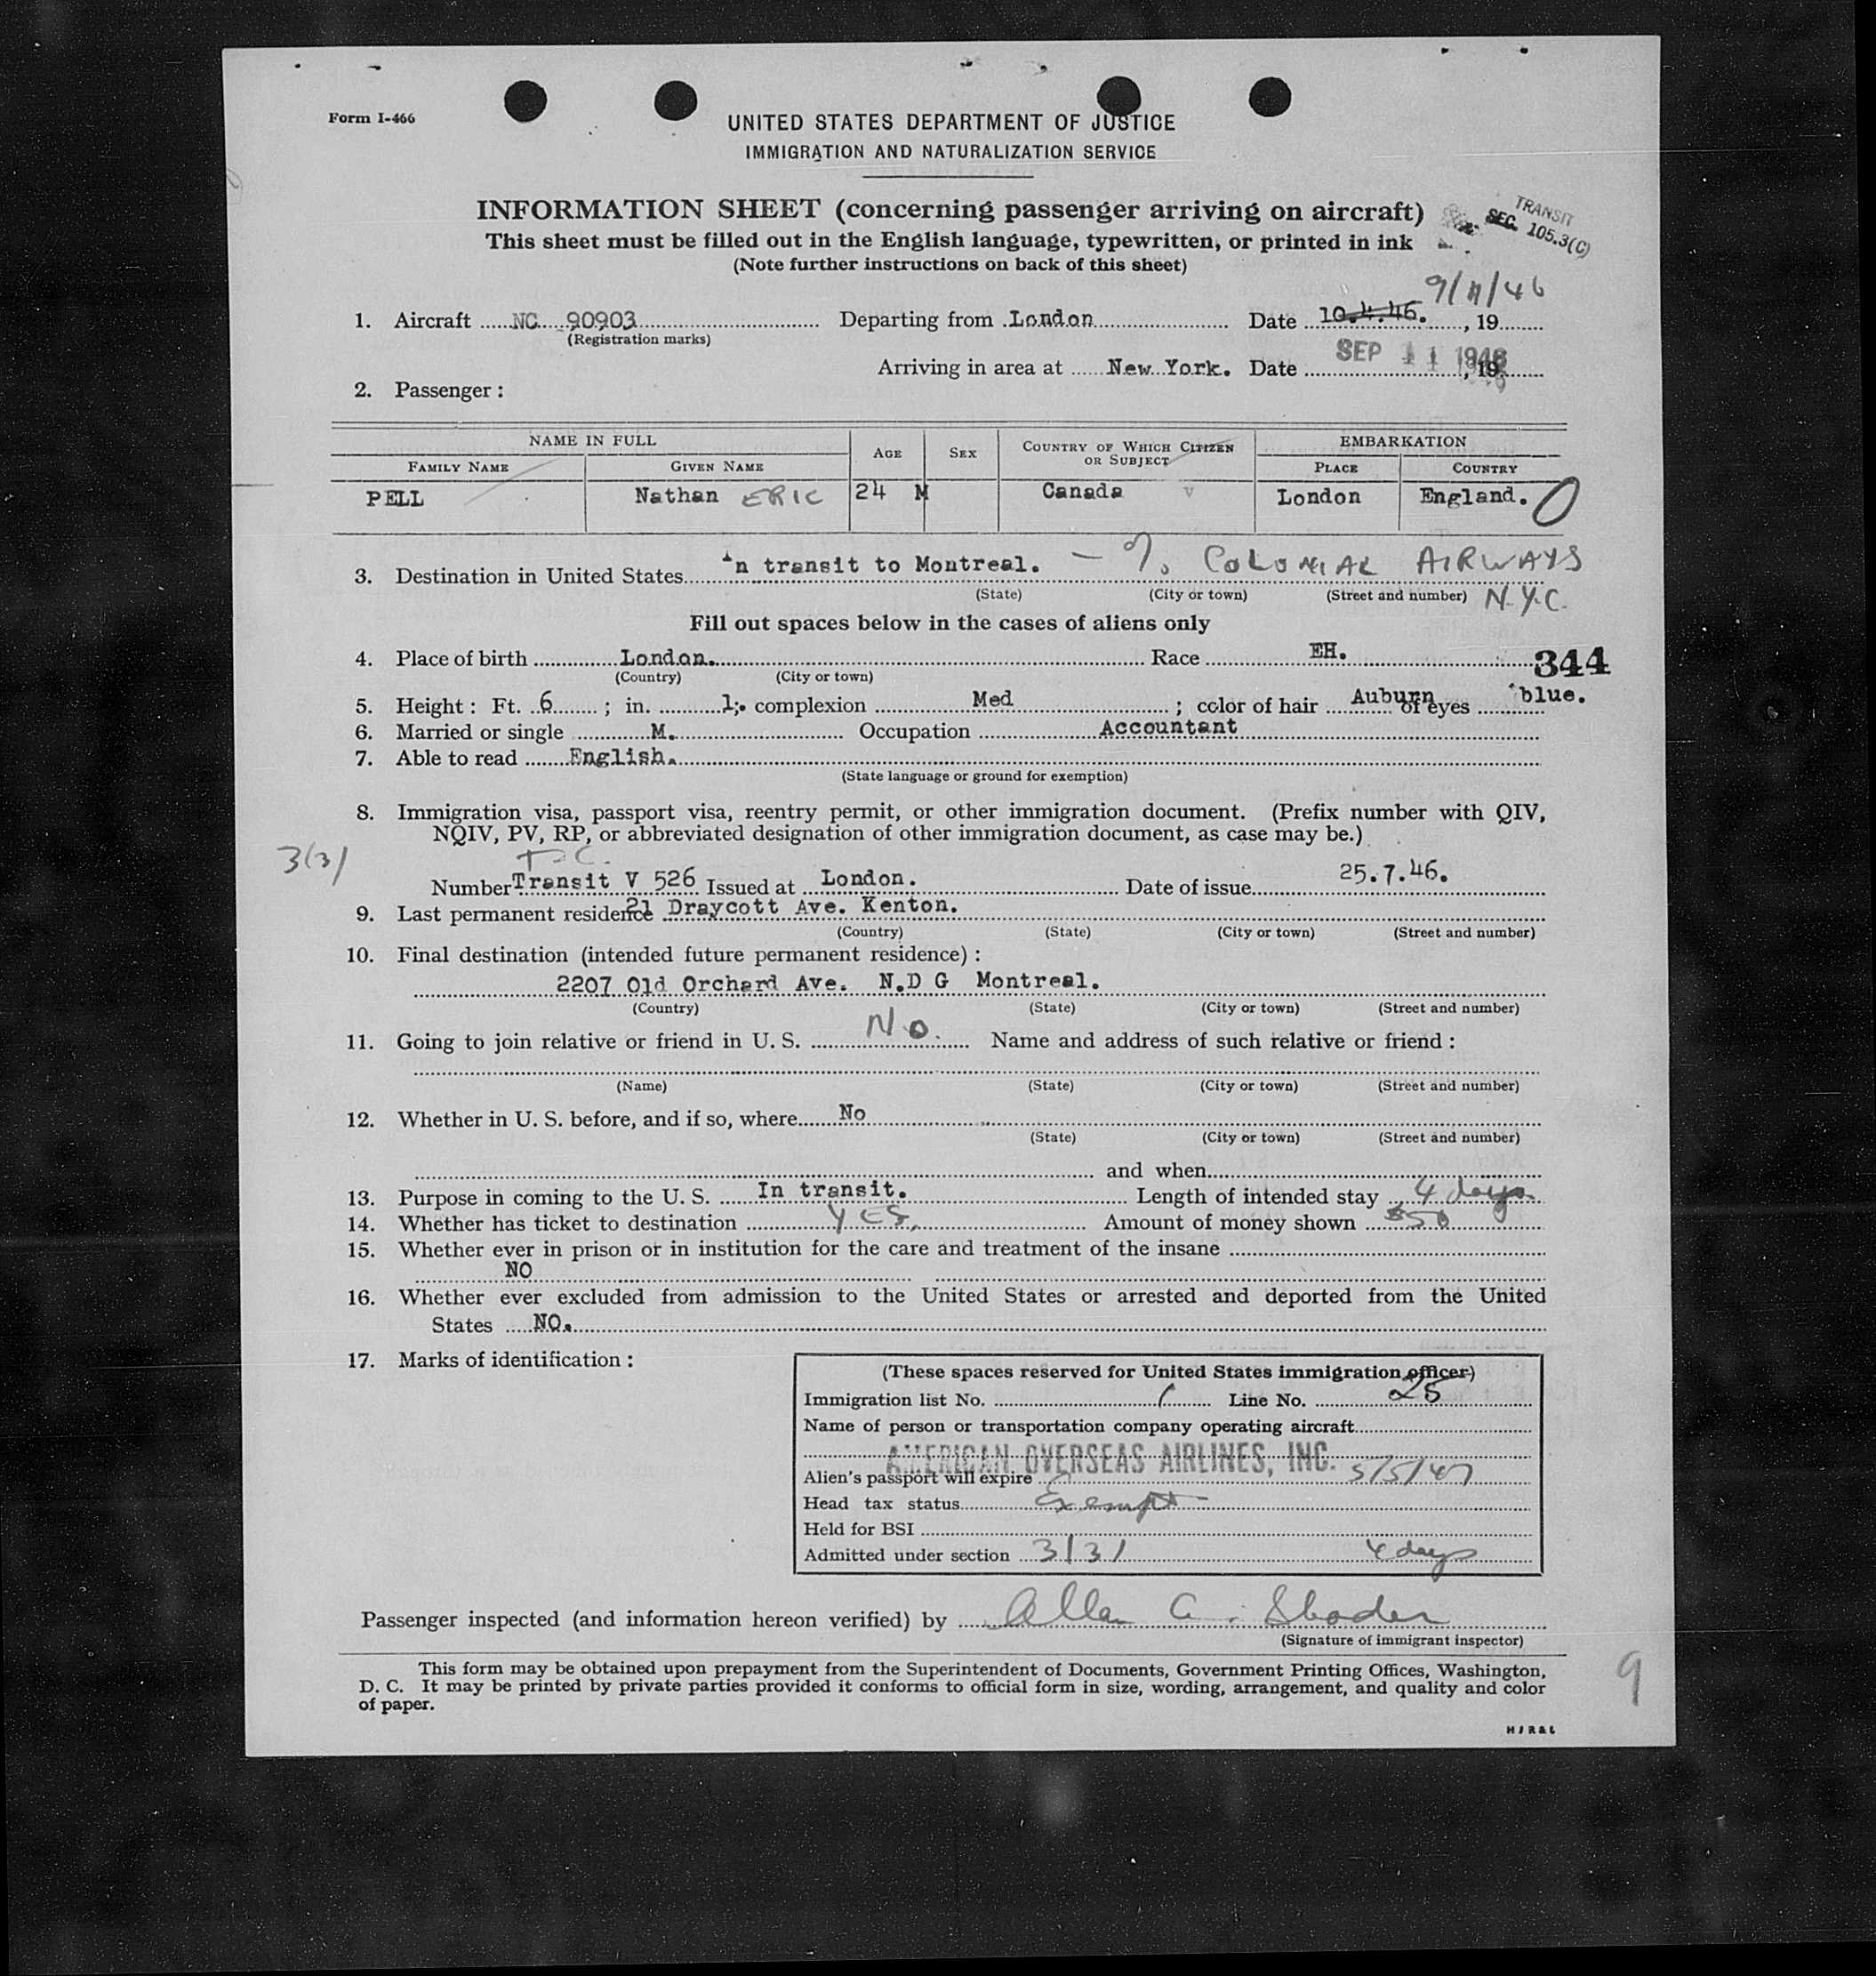 Form I-466
UNITED STATES DEPARTMENT OF JUSTICE
IMMIGRATION AND NATURALIZATION SERVICE
INFORMATION SHEET (concerning passenger arriving on aircraft)
TRANSIT
SEC. 105.3(C)
This sheet must be filled out in the English language, typewritten, or printed in ink
(Note further instructions on back of this sheet)
9/11/46
1. Aircraft NC 90903 Departing from London Date 10.4.46. , 19
(Registration marks)
Arriving in area at New York. Date SEP 11 1946 , 19
2. Passenger :
NAME IN FULL AGE SEX COUNTRY OF WHICH CITIZEN OR SUBJECT EMBARKATION
FAMILY NAME GIVEN NAME PLACE COUNTRY
PELL Nathan ERIC 24 M Canada v London England. O
3. Destination in United States In transit to Montreal. — % COLONIAL AIRWAYS
(State) (City or town) (Street and number) N.Y.C.
Fill out spaces below in the cases of aliens only
4. Place of birth London. Race EH. 344
(Country) (City or town)
5. Height : Ft. 6 ; in. 1; complexion Med ; color of hair Auburn of eyes blue.
6. Married or single M. Occupation Accountant
7. Able to read English.
(State language or ground for exemption)
8. Immigration visa, passport visa, reentry permit, or other immigration document. (Prefix number with QIV,
NQIV, PV, RP, or abbreviated designation of other immigration document, as case may be.)
3(3)
Number Transit V 526 Issued at London. Date of issue 25.7.46.
9. Last permanent residence 21 Draycott Ave. Kenton.
(Country) (State) (City or town) (Street and number)
10. Final destination (intended future permanent residence) :
2207 Old Orchard Ave. N.D G Montreal.
(Country) (State) (City or town) (Street and number)
11. Going to join relative or friend in U. S. No. Name and address of such relative or friend :
(Name) (State) (City or town) (Street and number)
12. Whether in U. S. before, and if so, where No
(State) (City or town) (Street and number)
and when
13. Purpose in coming to the U. S. In transit. Length of intended stay 4 days.
14. Whether has ticket to destination YES, Amount of money shown $50
15. Whether ever in prison or in institution for the care and treatment of the insane
NO
16. Whether ever excluded from admission to the United States or arrested and deported from the United
States NO.
17. Marks of identification :
(These spaces reserved for United States immigration officer)
Immigration list No. 1 Line No. 25
Name of person or transportation company operating aircraft
AMERICAN OVERSEAS AIRLINES, INC.
Alien's passport will expire 5/5/47
Head tax status Exempt
Held for BSI
Admitted under section 3/3/ 4 days
Passenger inspected (and information hereon verified) by Allan C. Shoder
(Signature of immigrant inspector)
This form may be obtained upon prepayment from the Superintendent of Documents, Government Printing Offices, Washington,
D. C. It may be printed by private parties provided it conforms to official form in size, wording, arrangement, and quality and color
of paper.
9